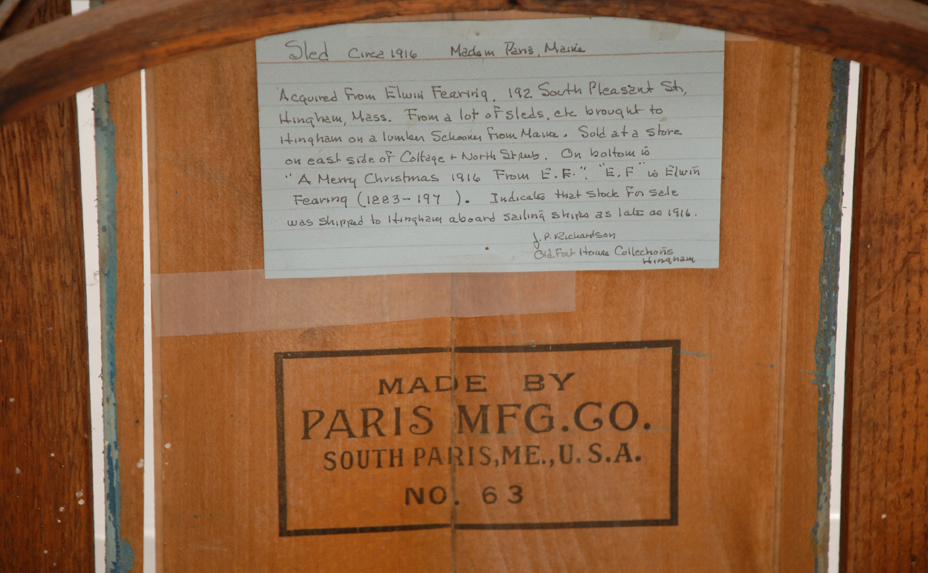 Sled Circa 1916 Made in Paris, Maine
Acquired from Elwin Fearing, 192 South Pleasant St,
Hingham, Mass. From a lot of sleds, etc brought to
Hingham on a lumber Schooner from Maine. Sold at a store
on east side of Cottage + North Streets. On bottom is
"A Merry Christmas 1916 From E.F." "E.F" is Elwin
Fearing (1883-197 ). Indicates that stock for sale
was shipped to Hingham aboard sailing ships as late as 1916.
J.P. Richardson
Old Fort House Collections
Hingham
MADE BY
PARIS MFG. CO.
SOUTH PARIS, ME., U.S.A.
NO. 63